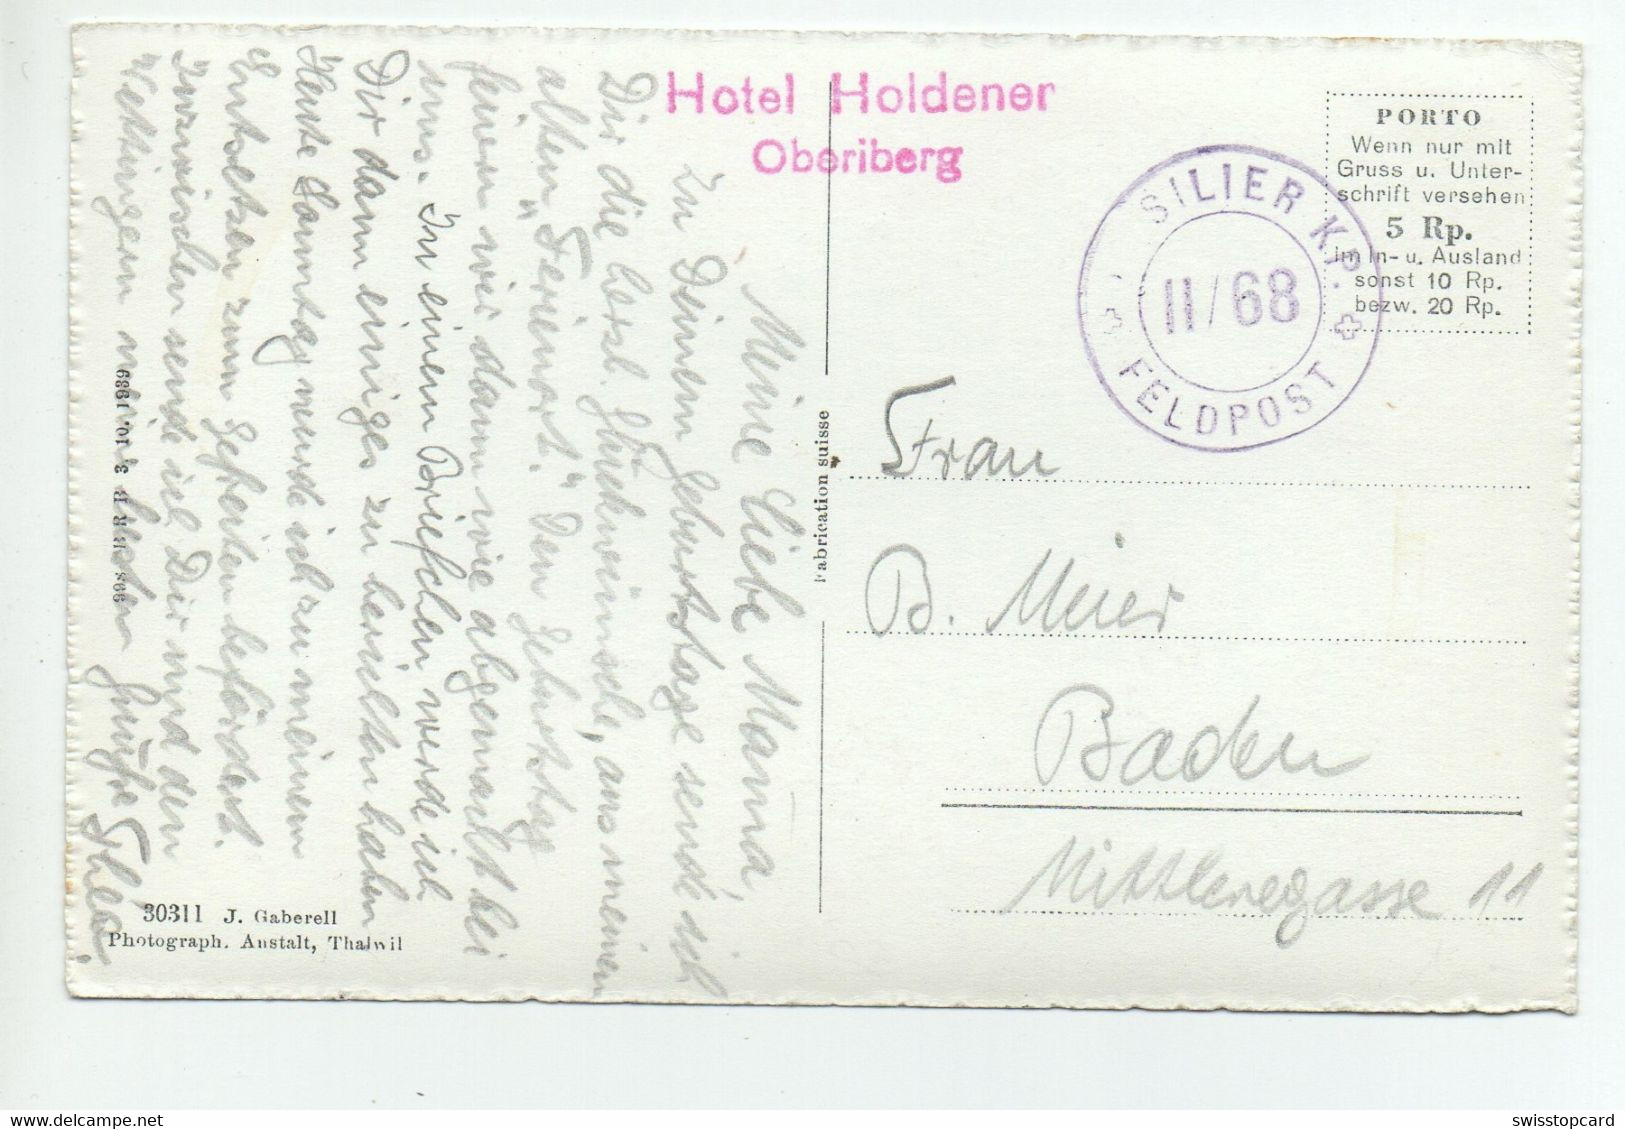 Hotel Holdener
Oberiberg
Meine liebe Mama,
Zu Deinem Geburtstage sende ich
Dir die herzl. Glückwünsche, aus meinem
alten "Ferienort." Den Geburtstag
feiern wir dann wie abgemacht bei
uns. In einem Briefchen werde ich
Dir dann einiges zu berichten haben.
Heute Samstag wurde ich zu meinem
Entsetzen zum Gefreiten befördert.
Inzwischen sende ich Dir und den
Wettingern meine besten Grüsse Theo.
998 BRB 3.10.1939
30311 J. Gaberell
Photograph. Anstalt, Thalwil
Fabrication suisse
SILIER KP.
II/68
FELDPOST
PORTO
Wenn nur mit
Gruss u. Unter-
schrift versehen
5 Rp.
im In- u. Ausland
sonst 10 Rp.
bezw. 20 Rp.
Frau
B. Meier
Baden
Mittlere­gasse 11
swisstopcard